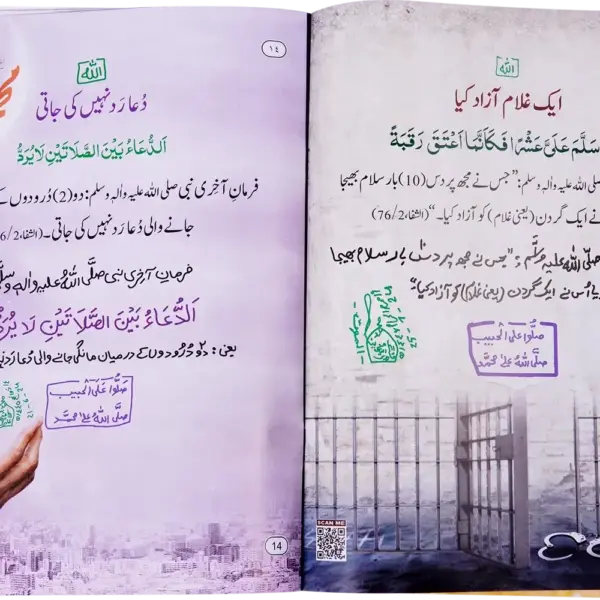 ١٤
الله
دُعا رَد نہیں کی جاتی
اَلدُّعَاءُ بَيْنَ الصَّلَاتَيْنِ لَا يُرَدُّ
فرمانِ آخری نبی صلی اللہ علیہ واٰلہ وسلم: دو(2) دُرودوں کے
جانے والی دُعا رَد نہیں کی جاتی۔ (الشفا، 2/6
فرمانِ آخِری نبی صلَّی اللہُ علیہِ واٰلہٖ وسلَّم
اَلدُّعَاءُ بَيْنَ الصَّلَاتَيْنِ لَا يُرَدُّ
یعنی: دو دُرُودوں کے درمیان مانگی جانے والی دُعا رَد نہیں
صَلُّوا عَلَى الْحَبِيب
صلَّى اللهُ عَلٰى مُحَمَّد
14
الله
ایک غلام آزاد کیا
سَلَّمَ عَلَيَّ عَشْرًا فَكَاَنَّمَا اَعْتَقَ رَقَبَةً
صلی اللہ علیہ واٰلہ وسلم: ”جس نے مجھ پر دس (10) بار سلام بھیجا
نے ایک گردن (یعنی غلام) کو آزاد کیا۔“ (الشفا، 2/76)
صلَّی اللہُ علیہِ وسلَّم : ”جس نے مجھ پر دس بار سلام بھیجا
اُس نے ایک گردن (یعنی غلام) کو آزاد کیا“
صَلُّوا عَلَى الْحَبِيب
صلَّى اللهُ عَلٰى مُحَمَّد
SCAN ME